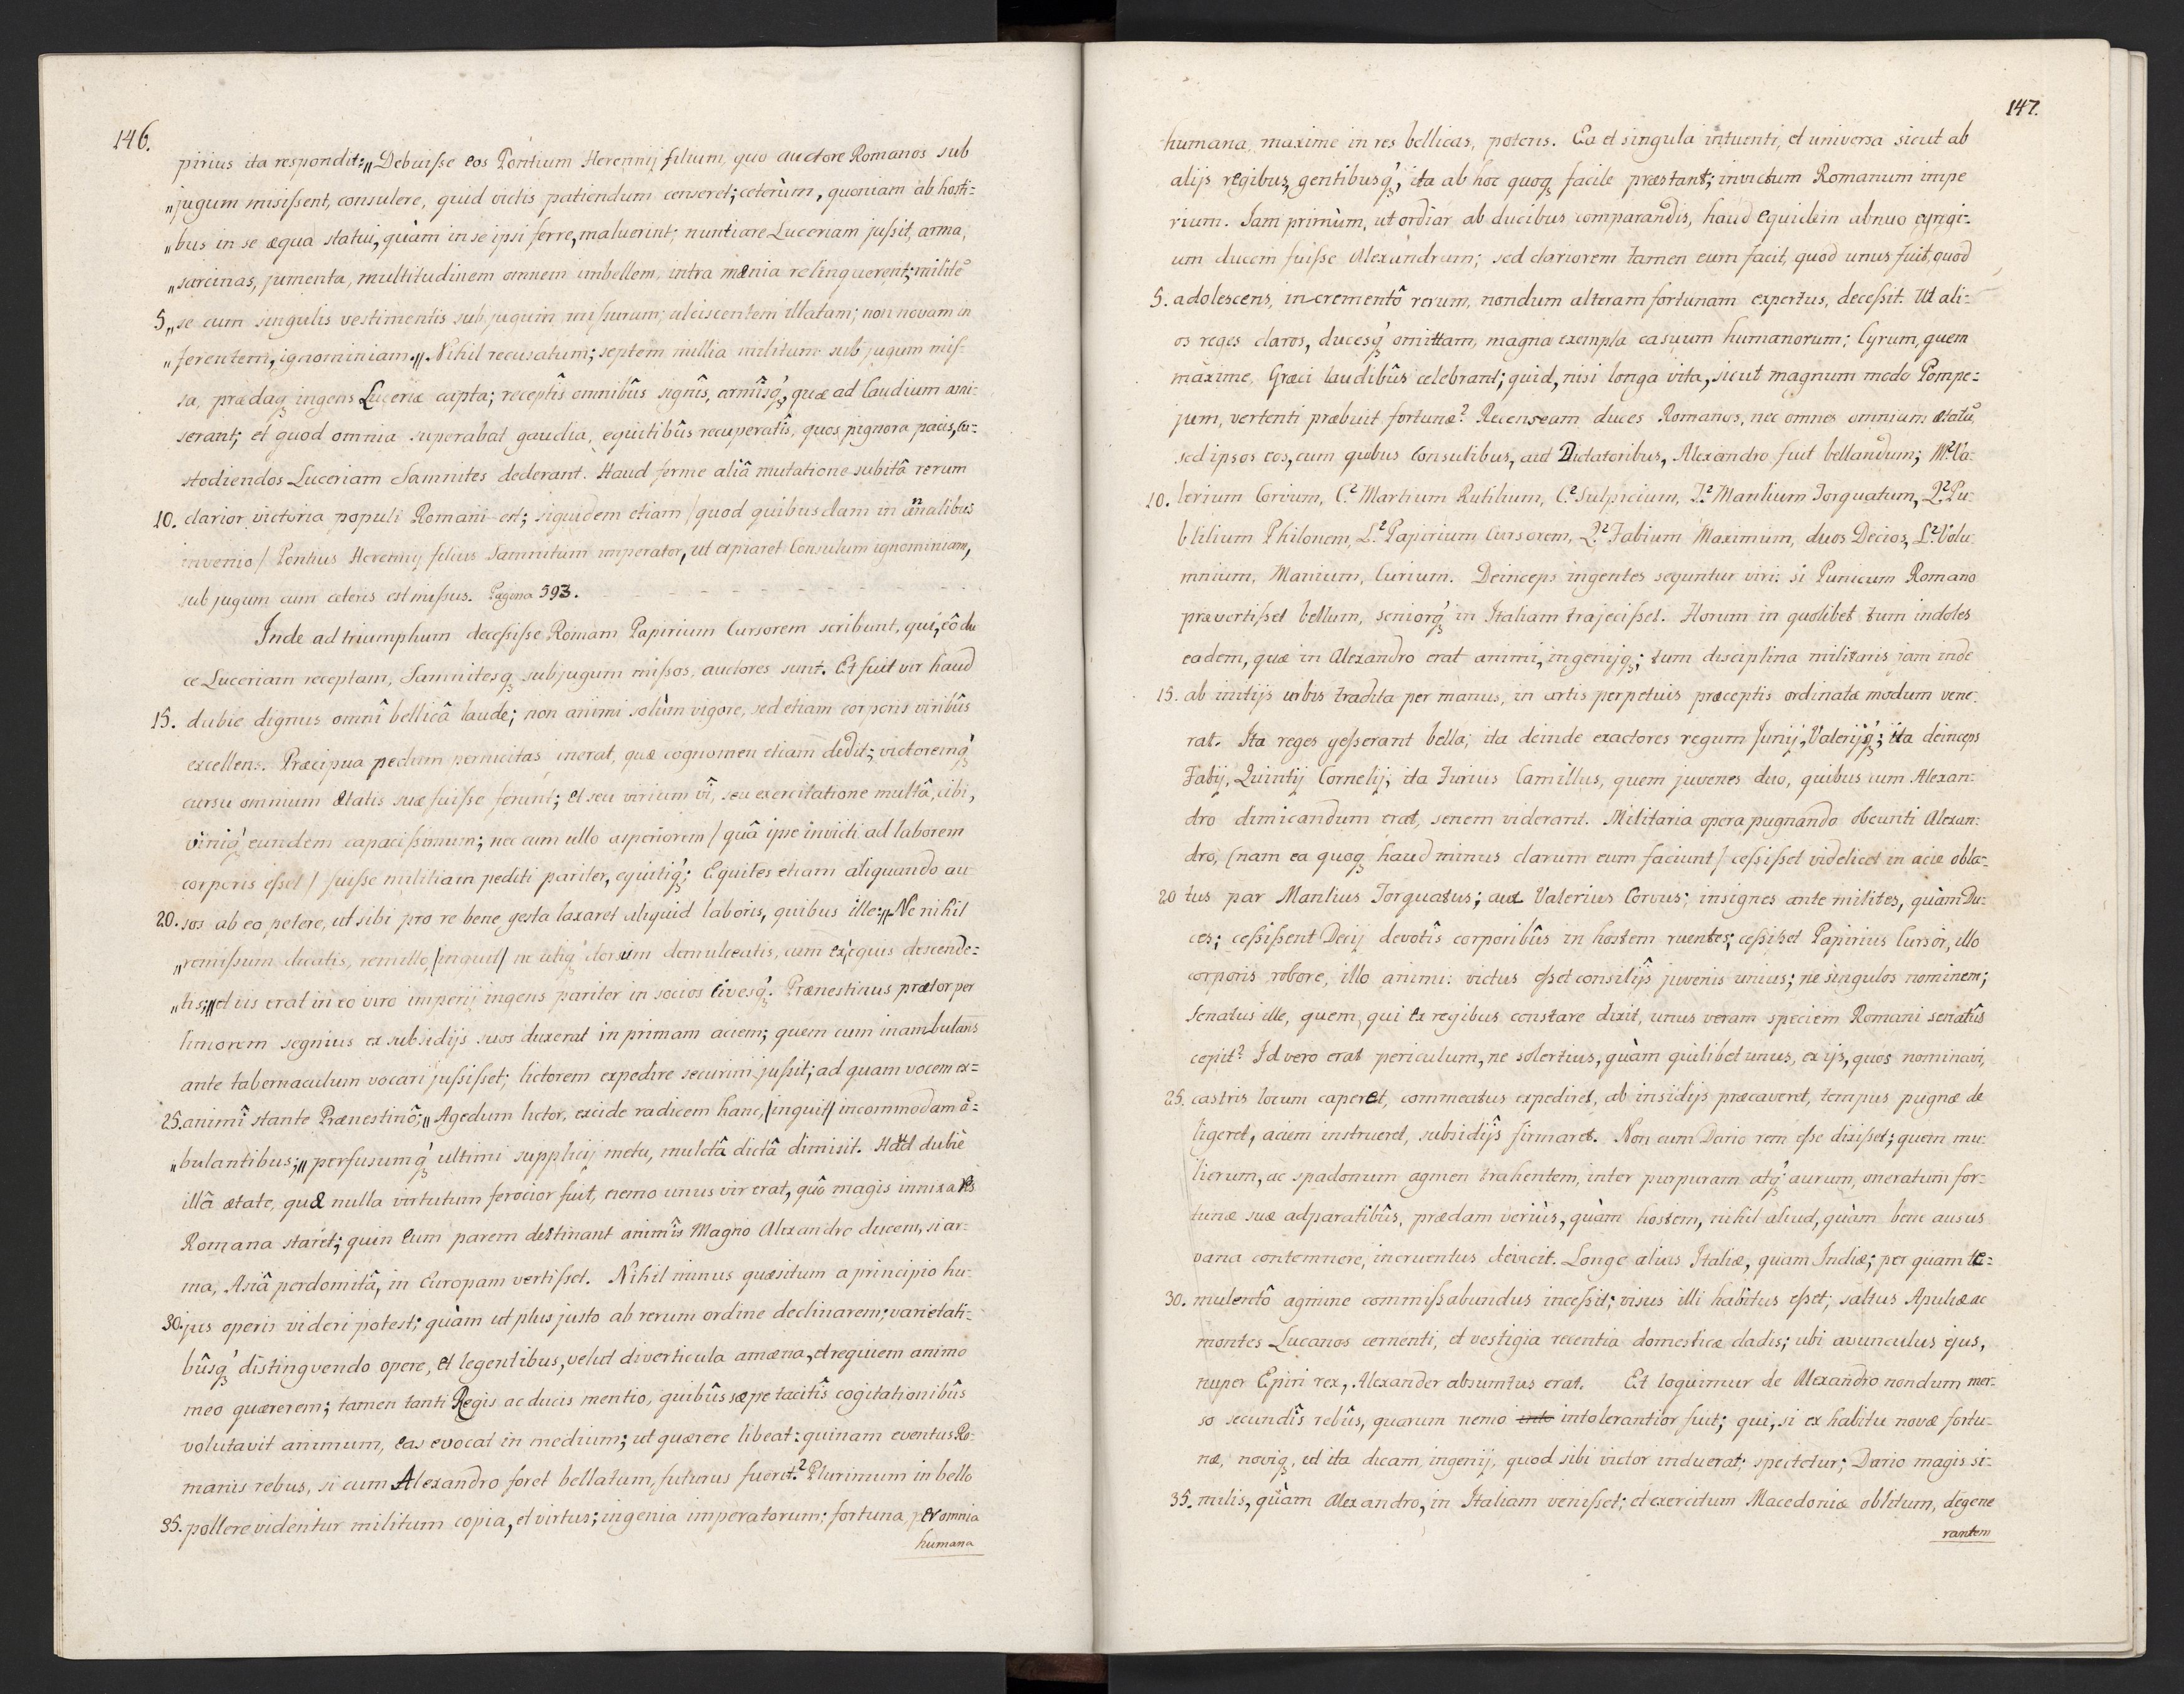 146.
pirius ita respondit: „Debuiſse eos Pontium Herennij filium, quo auctore Romanos sub
„jugum misiſsent, consulere, quid victis patiendum censeret; ceterùm, quoniam ab hosti=
„bus in se æqua statui, quàm in se ipsi ferre, maluerint; nuntiare Luceriam juſsit, arma,
„sarcinas, jumenta, multitudinem omnem imbellem, intra mœnia relinquerent; militẽ
5. „se cum singulis vestimentis sub jugum miſsurum; ulciscentem illatam; non novam in
„ferentem, ignominiam.„ Nihil recusatum; septem millia militum sub jugum miſ=
sa, prædaq̃ ingens Luceriæ capta; receptîs omnibûs signîs, armîsq́, quæ ad Caudium ami=
serant; et quod omnia superabat gaudia, equitibûs recuperatîs, quos pignora pacis, cu=
stodiendos Luceriam Samnites dederant. Haud ferme aliâ mutatione subitâ rerum
10. clarior victoria populi Romani est; siquidem etiam /quod quibusdam in annalibus
invenio/ Pontius Herennij filius Samnitum imperator, ut expiaret Consulum ignominiam,
sub jugum cum ceteris est miſsus. Pagina 593.
Inde ad triumphum deceſsiſse Romam Papirium Cursorem scribunt, qui, eô du
ce Luceriam receptam, Samnitesq̃ sub jugum miſsos, auctores sunt. Et fuit vir haud
15. dubie dignus omnî bellicâ laude; non animi solùm vigore, sed etiam corporis viribûs
excellens. Præcipua pedum pernicitas inerat, quæ cognomen etiam dedit; victoremq́
cursu omnium ætatis suæ fuiſse ferunt; et seu virium vî, seu exercitatione multâ, cibi,
viniq́ eundem capaciſsimum; nec cum ullo asperiorem /quâ ipse invicti ad laborem
corporis eſset/ fuiſse militiam pediti pariter, equitiq́; Equites etiam aliquando au
20. sos ab eo petere, ut sibi pro re bene gesta laxaret aliquid laboris, quibus ille: „Ne nihil
„remiſsum dicatis, remitto, /inquit/ ne utiq́ dorsum demulceatis, cum ex equis descende=
„tis;„ et vis erat in eo viro imperij ingens pariter in socios civesq́. Prænestinus prætor per
timorem segnius ex subsidijs suos duxerat in primam aciem; quem cum inambulans
ante tabernaculum vocari juſsiſset; lictorem expedire securim juſsit; ad quam vocem ex=
25. animî stante Prænestinô; „Agedum lictor, excide radicem hanc, /inquit/ incommodam ã=
„bulantibus;„ perfusumq́ ultimi supplicij metu, mulctâ dictâ dimisit. Haud dubiè
illâ ætate, quâ nulla virtutum feracior fuit, nemo unus vir erat, quô magis innixa res
Romana staret; quin eum parem destinant animîs Magno Alexandro ducem, si ar=
ma, Asiâ perdomitâ, in Europam vertiſset. Nihil minus quæsitum a principio hu=
30. jus operis videri potest; quàm ut plus justo ab rerum ordine declinarem; varietati=
bûsq́ distingvendo opere, et legentibus, velut diverticula amœna, et requiem animo
meo quærerem; tamen tanti Regis ac ducis mentio, quibûs sæpe tacitîs cogitationibûs
volutavit animum, eas evocat in medium; ut quærere libeat: quinam eventus Ro=
manis rebus, si cum Alexandro foret bellatum, futurus fuerit? Plurimum in bello
35. pollere videntur militum copia, et virtus; ingenia imperatorum; fortuna, per omnia
humana
147.
humana, maxime in res bellicas, potens. Ea et singula intuenti, et universa sicut ab
alijs regibus, gentibusq́, ita ab hoc quoq̃ facile præstant; invictum Romanum impe
rium. Iam primùm, ut ordiar ab ducibus comparandis, haud equidem abnuo egregi=
um ducem fuiſse Alexandrum; sed clariorem tamen eum facit, quod unus fuit, quod
5. adolescens, in crementô rerum, nondum alteram fortunam expertus, deceſsit. Ut ali=
os reges claros, ducesq́ omittam, magna exempla casuum humanorum; Cyrum, quem
maxime Græci laudibûs celebrant; quid, nisi longa vita, sicut magnum modo Pompe=
jum, vertenti præbuit fortunæ? Recenseam duces Romanos, nec omnes omnium ætatũ,
sed ipsos eos, cum quibus Consulibus, aut Dictatoribus, Alexandro fuit bellandum; M. Va=
10. lerium Corvum, C. Martium Rutilium, C. Sulpicium, T. Manlium Torquatum, Q. Pu=
blilium Philonem, L. Papirium Cursorem, Q. Fabium Maximum, duos Decios, L. Volu=
mnium, Manium, Curium. Deinceps ingentes sequntur viri: si Punicum Romano
prævertiſset bellum, seniorq́ in Italiam trajeciſset. Horum in quolibet tum indoles
eadem, quæ in Alexandro erat animi, ingenijq̃; tum disciplina militaris jam inde
15. ab initijs urbis tradita per manus, in artis perpetuis præceptis ordinatæ modum vene=
rat. Ita reges geſserant bella; ita deinde exactores regum Junij, Valerijq́; ita deinceps
Fabij, Quintij Cornelij, ita Furius Camillus, quem juvenes duo, quibus cum Alexan=
dro dimicandum erat, senem viderant. Militaria opera pugnando obeunti Alexan=
dro, /nam ea quoq̃ haud minus clarum eum faciunt/ ceſsiſset videlicet in acie obla=
20 tus par Manlius Torquatus; aut Valerius Corvus; insignes ante milites, quàm Du=
ces; ceſsiſsent Decij devotîs corporibûs in hostem ruentes; ceſsiſset Papirius Cursor, illo
corporis robore, illo animi: victus eſset consilijs juvenis unius; ne singulos nominem;
Senatus ille, quem, qui ex regibus constare dixit, unus veram speciem Romani senatûs
cepit? Id vero erat periculum, ne solertius, quàm quilibet unus, ex ijs, quos nominavi,
25. castris locum caperet, commeatus expediret, ab insidijs præcaveret, tempus pugnæ de
ligeret, aciem instrueret, subsidijs firmaret. Non cum Dario rem eſse dixiſset; quem mu=
lierum, ac spadonum agmen trahentem, inter purpuram atq́ aurum, oneratum for=
tunæ suæ adparatibûs, prædam veriùs, quàm hostem, nihil aliud, quàm bene ausus
vana contemnere, incruentus devicit. Longe alius Italiæ, quam Indiæ; per quam te=
30. mulentô agmine commiſsabundus inceſsit; visus illi habitus eſset; saltus Apuliæ ac
montes Lucanos cernenti, et vestigia recentia domesticæ cladis; ubi avunculus ejus,
nuper Epiri rex, Alexander absumtus erat. Et loquimur de Alexandro nondum mer=
so secundîs rebûs, quarum nemo into intolerantior fuit; qui, si ex habitu novæ fortu=
næ, noviq̃, ut ita dicam, ingenij, quod sibi victor induerat; spectetur; Dario magis si=
35. milis, quàm Alexandro, in Italiam veniſset; et exercitum Macedoniæ oblitum, degene
rantem